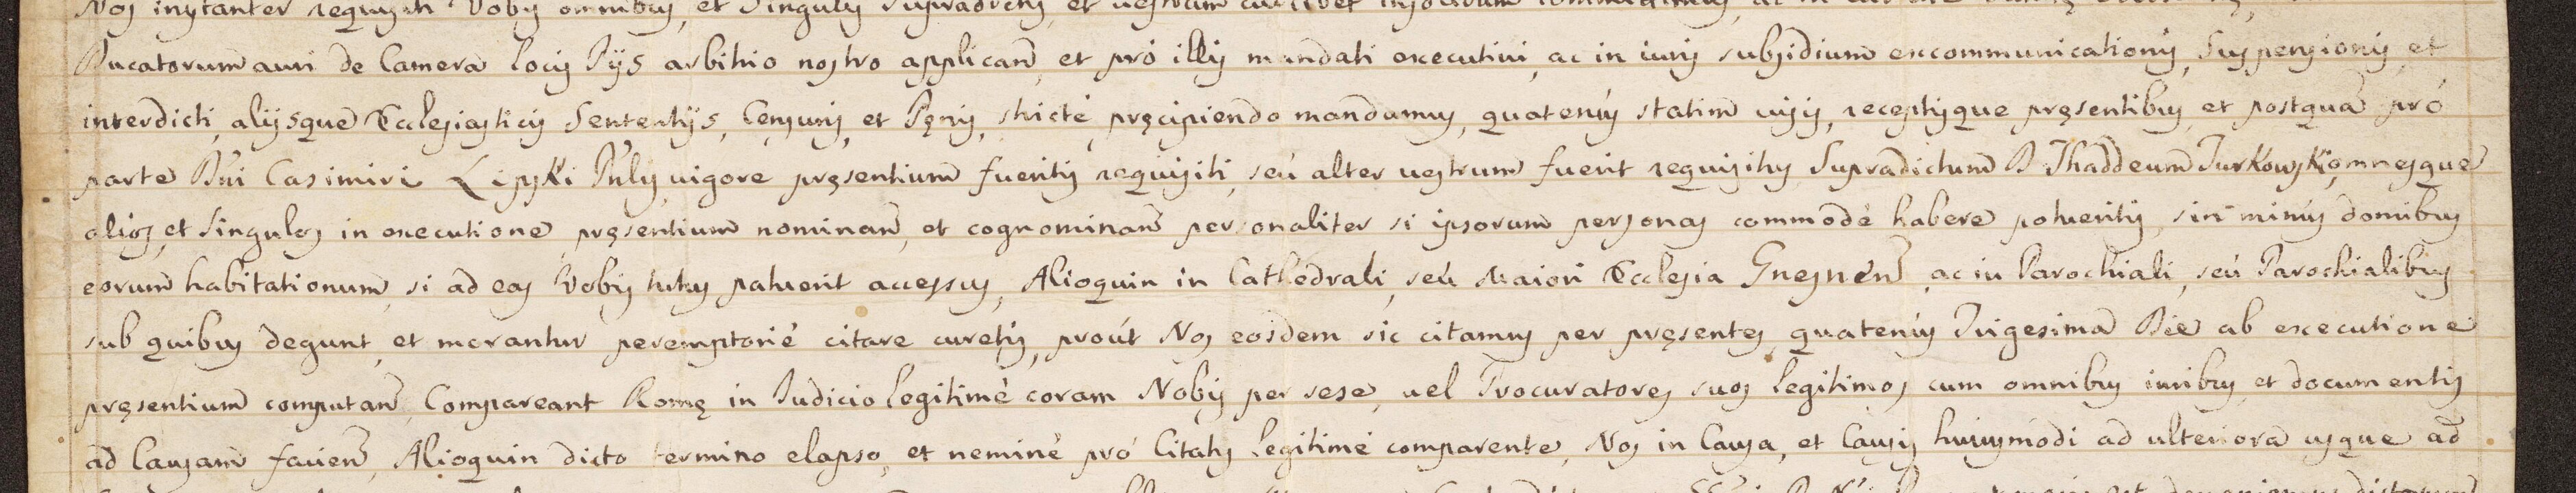 Nos instanter requisiti Vobis omnibus, et Singulis supradictis, et vestrum cuilibet insolidum committimus, ac in
Ducatorum auri de Camera locis Pijs arbitrio nostro applican̄, et pró illis mandati executivi, ac in iuris subsidium excommunicationis, Suspensionis, et
interdicti, alijsque Ecclesiasticis Sententijs, Censuris, et Pęnis, stricté pręcipiendo mandamus, quatenús statim visis, receptisque pręsentibus, et postquā pró
parte Dn̄i Casimiri Lipski Prn̄lis, vigore pręsentium fueritis requisiti, seú alter vestrum fuerit requisitus Supradictum D Thaddeum Turkowski, omnesque
alios, et singulos in executione pręsentium nominan̄, et cognominan̄ personaliter si ipsorum personas commodé habere potueritis, sin minús domibus
eorum habitationum, si ad eas Vobis tutus patuerit accessus, Alioquin in Cathedrali, seú Maiori Ecclesia Gnesnén̄, ac in Parochiali, seú Parochialibus
sub quibus degunt, et morantur peremptorié citare curetis, proút Nos eosdem sic citamus per pręsentes, quatenús Trigesima Die ab executione
pręsentium computan̄, Compareant Romę in Iudicio legitimé coram Nobis per sese, vel Procuratores suos legitimos cum omnibus iuribus, et documentis
ad Causam facien̄, Alioquin dicto termino elapso, et neminé pró Citatis legitimé comparente, Nos in Causa, et Causis huiusmodi ad ulteriora usque ad